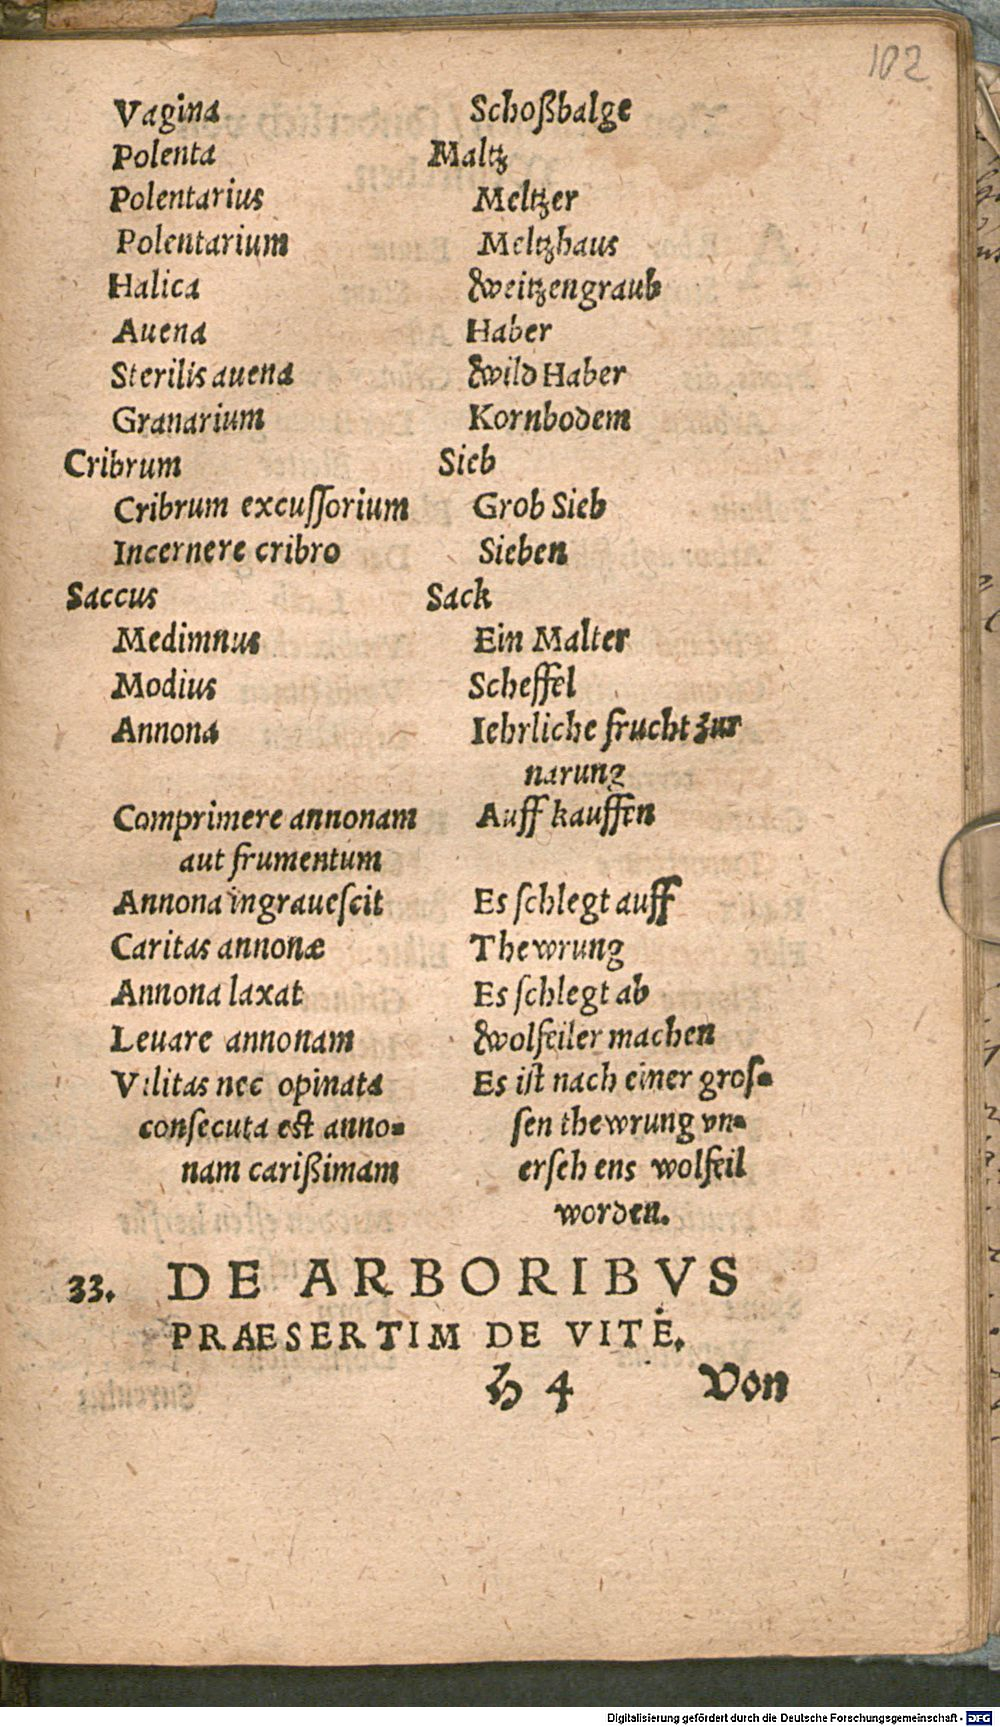 102
Vagina Schoßbalge
Polenta Maltz
Polentarius Meltzer
Polentarium Meltzhaus
Halica Weitzengraub
Auena Haber
Sterilis auena Wild Haber
Granarium Kornbodem
Cribrum Sieb
Cribrum excuſſorium Grob Sieb
Incernere cribro Sieben
Saccus Sack
Medimnus Ein Malter
Modius Scheffel
Annona Iehrliche frucht zur
narung
Comprimere annonam Auff kauffen
aut frumentum
Annona ingraueſcit Es ſchlegt auff
Caritas annonæ Thewrung
Annona laxat Es ſchlegt ab
Leuare annonam Wolfeiler machen
Vilitas nec opinata Es iſt nach einer groſ-
conſecuta eſt anno- ſen thewrung vn-
nam carißimam erſehens wolfeil
worden.
33. DE ARBORIBVS
PRAESERTIM DE VITE.
H 4 Von
Digitalisierung gefördert durch die Deutsche Forschungsgemeinschaft - DFG